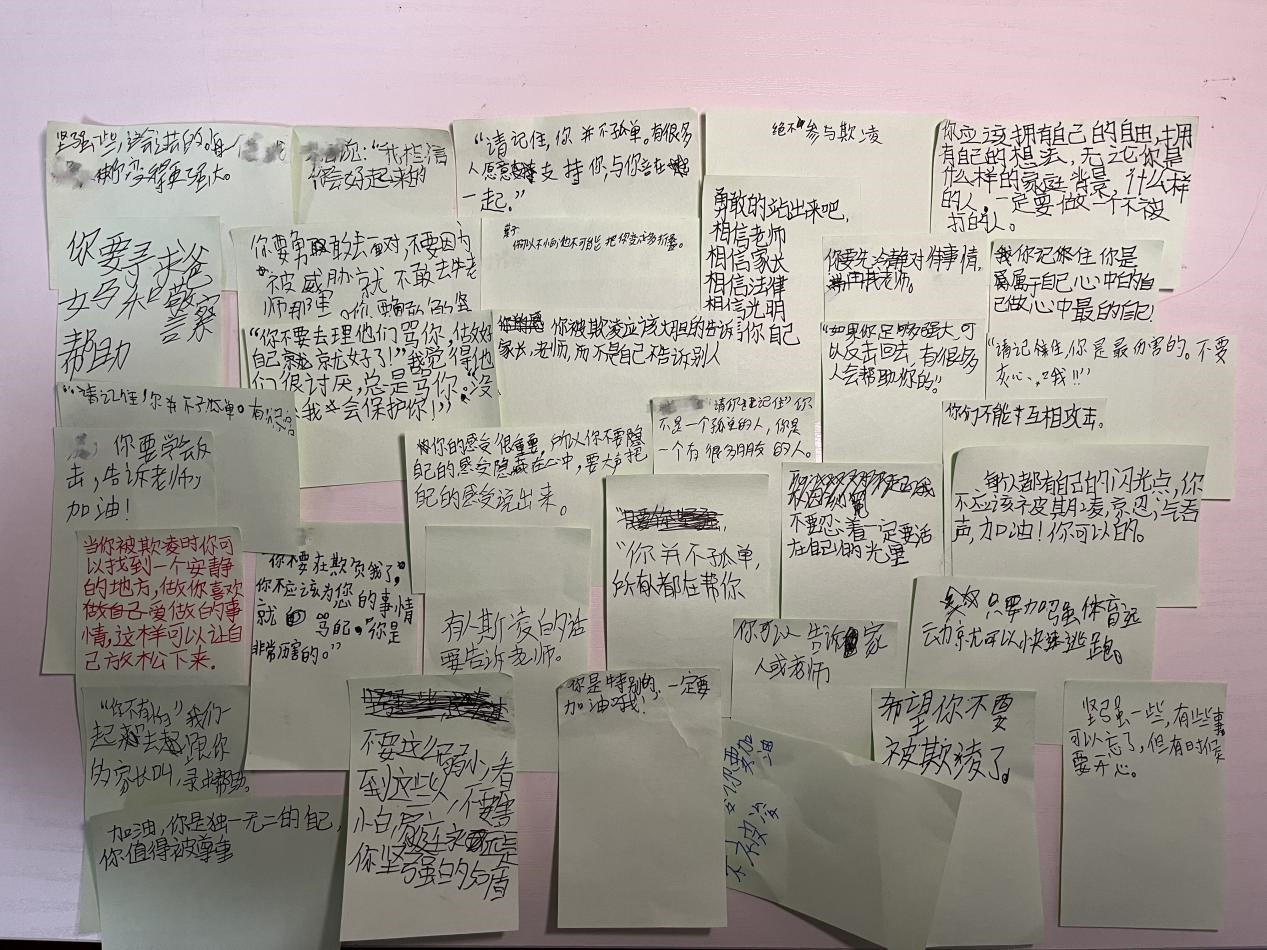 坚强一些,这会过去的。每
使你变得更强大。
说:“我相信
你会好起来的
“请记住,你并不孤单。有很多
人愿意支持你,与你站在
一起。”
绝不参与欺凌
你应该拥有自己的自由,拥
有自己的想法,无论你是
什么样的家庭背景,什么样
的人,一定要做一个不被
打的人。
你要寻求爸
妈和警察
帮助
你要勇敢去面对,不要因为
被威胁就不敢去告老
师那里。你要勇敢
勇敢的站出来吧,
相信老师
相信家长
相信法律
相信光明
你自己
你要先冷静对待事情,
再找老师。
你记住你是
属于自己心中的自
己做心中最的自己!
“你不要去理他们骂你,做好
自己就好了!”我觉得他
们很讨厌,总是骂你。“没
我会保护你!”
你被欺凌应该大胆的告诉
家长,老师,而不是自己不告诉别人
“如果你足够强大,可
以反击回去,有很多
人会帮助你的”
“请记住,你是最伤害的。不要
灰心,哦!!”
“请记住!你并不孤单。有很多
你要学会反
击,告诉老师,
加油!
你的感受很重要,所以你不要隐
自己的感受隐藏在心中,要大声把
自己的感受说出来。
“请你记住”你
不是一个孤单的人,你是
一个有很多朋友的人。
你们不能互相攻击。
每人都有自己的闪光点,你
不应该被欺凌,忍气吞
声,加油!你可以的。
不要忍着一定要活
在自己的光里
“你并不孤单,
所有人都在帮你
当你被欺凌时你可
以找到一个安静
的地方,做你喜欢
做自己爱做的事
情,这样可以让自
己放松下来。
“你不要在欺负我了,
你不应该为您的事情
就骂自己。“你是
非常厉害的。”
有人斯凌的话
要告诉老师。
你可以告诉家
人或老师
只要加强体育运
动就可以快速逃跑。
“你不有怕”我们一
起去跟你
的家长叫,寻求帮助。
不要这么弱小,看
到这些人,不要害
你坚强的后盾
你是特别的,一定要
加油哦!
希望你不要
被欺凌了。
坚强一些,有些事
可以忘了,但有时候
要开心。
加油,你是独一无二的自己,
你值得被尊重